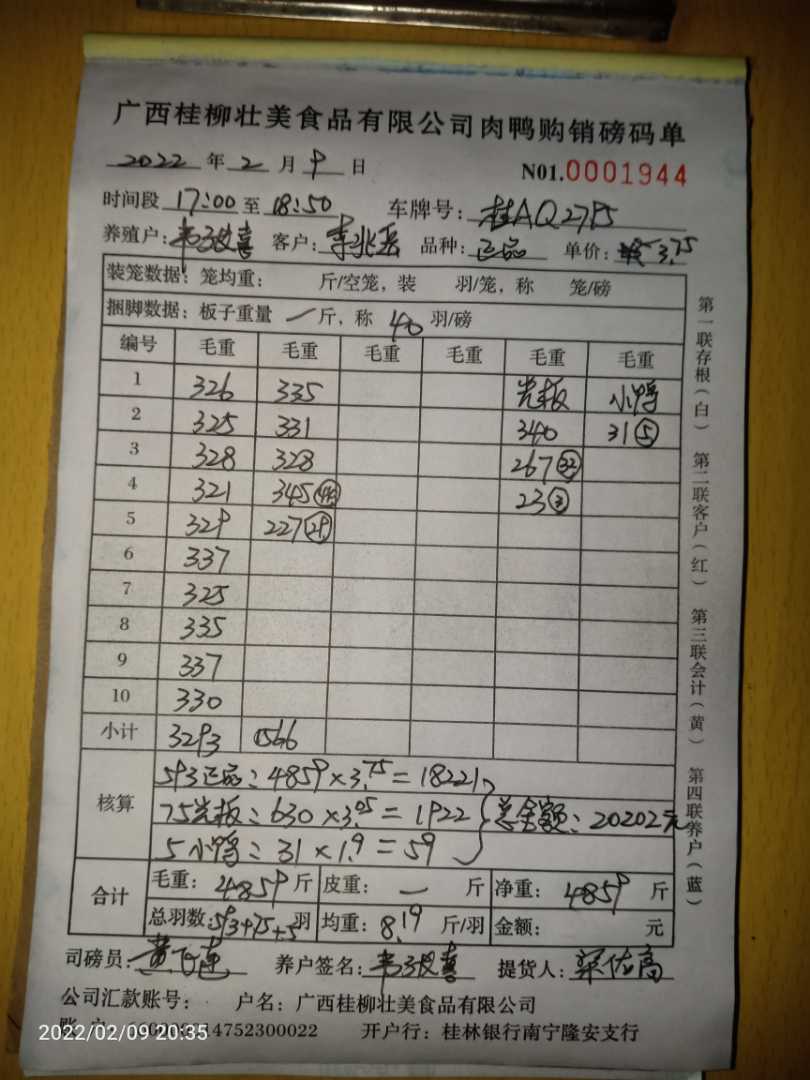 广西桂柳壮美食品有限公司肉鸭购销磅码单
2022年2月9日 N01.0001944
时间段17:00至18:50 车牌号:桂AQ27
养殖户: 客户:李兆 品种:正品 单价:3.75
装笼数据:笼均重: 斤/空笼,装 羽/笼,称 笼/磅
捆脚数据:板子重量一斤,称40羽/磅
编号 毛重 毛重 毛重 毛重 毛重 毛重
1 326 335 光板 小鸭
2 325 331 340 31⑤
3 328 328 267㉜
4 321 345 23③
5 329 227
6 337
7 325
8 335
9 337
10 330
小计 3293 1566
核算
593正品:4859×3.75=18221
75光板:630×3.05=1922 总金额:20202元
5小鸭:31×1.9=59
合计
毛重:4859斤 皮重:一斤 净重:4859斤
总羽数:593+75+5羽 均重:8.19斤/羽 金额: 元
司磅员:黄飞莲 养户签名: 提货人:梁佐高
公司汇款账号: 户名:广西桂柳壮美食品有限公司
14752300022 开户行:桂林银行南宁隆安支行
2022/02/09 20:35
第一联存根(白) 第二联客户(红) 第三联会计(黄) 第四联养户(蓝)